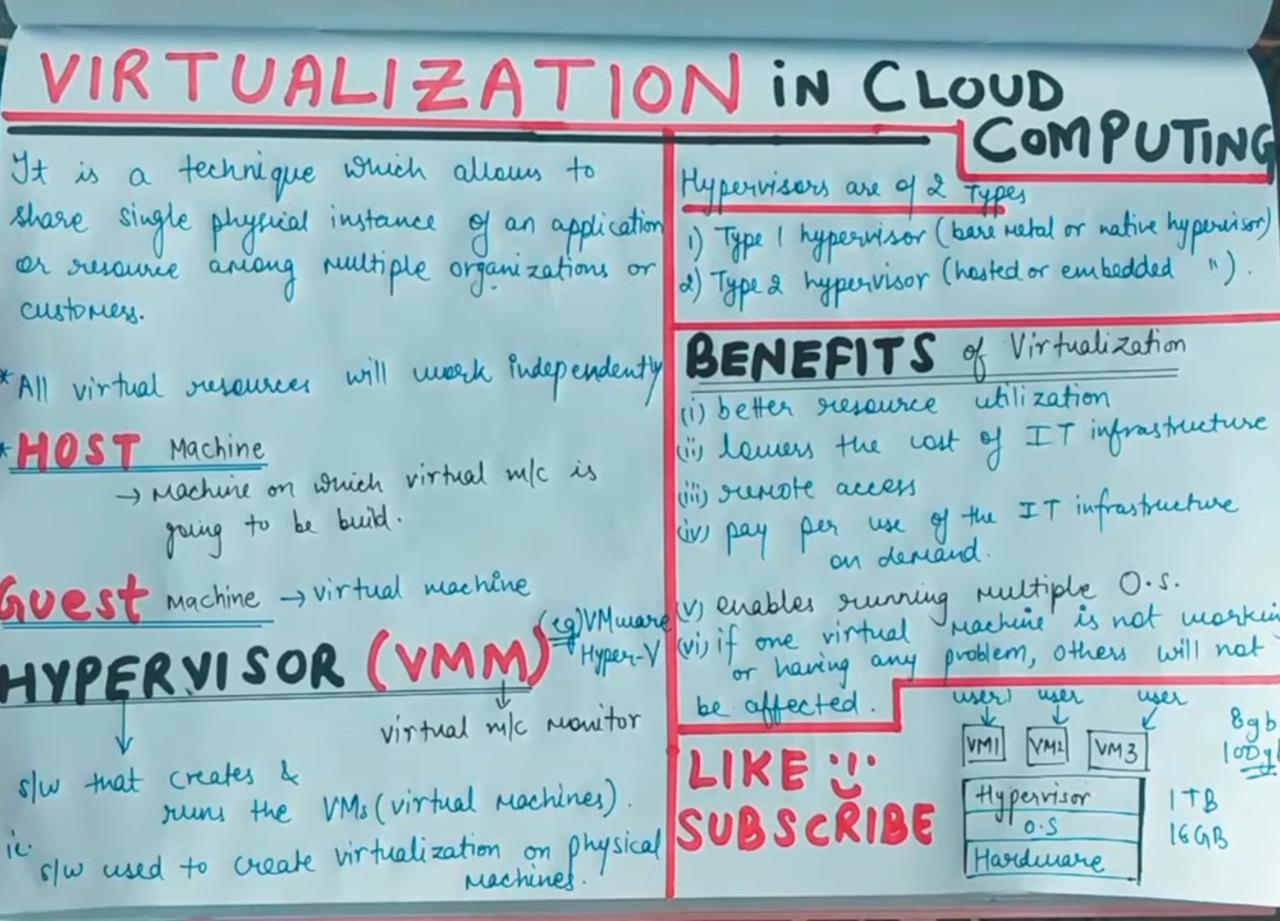 VIRTUALIZATION in CLOUD
COMPUTING
It is a technique which allows to
share single physical instance of an application
or resource among multiple organizations or
customers.
* All virtual resources will work independently
* HOST Machine
→ Machine on which virtual m/c is
going to be build.
Guest Machine → virtual machine
HYPERVISOR (VMM) (eg) VMware
Hyper-V
virtual m/c monitor
s/w that creates &
runs the VMs (virtual machines).
ie.
s/w used to create virtualization on physical
machines.
Hypervisors are of 2 Types
1) Type 1 hypervisor (bare metal or native hypervisor)
2) Type 2 hypervisor (hosted or embedded " ).
BENEFITS of Virtualization
(i) better resource utilization
(ii) lowers the cost of IT infrastructure
(iii) remote access
(iv) pay per use of the IT infrastructure
on demand.
(v) enables running multiple O.S.
(vi) if one virtual machine is not workin
or having any problem, others will not
be affected.
LIKE
SUBSCRIBE
user1 user user
VM1 VM2 VM3
Hypervisor
O.S
Hardware
8gb
100g
1TB
16GB